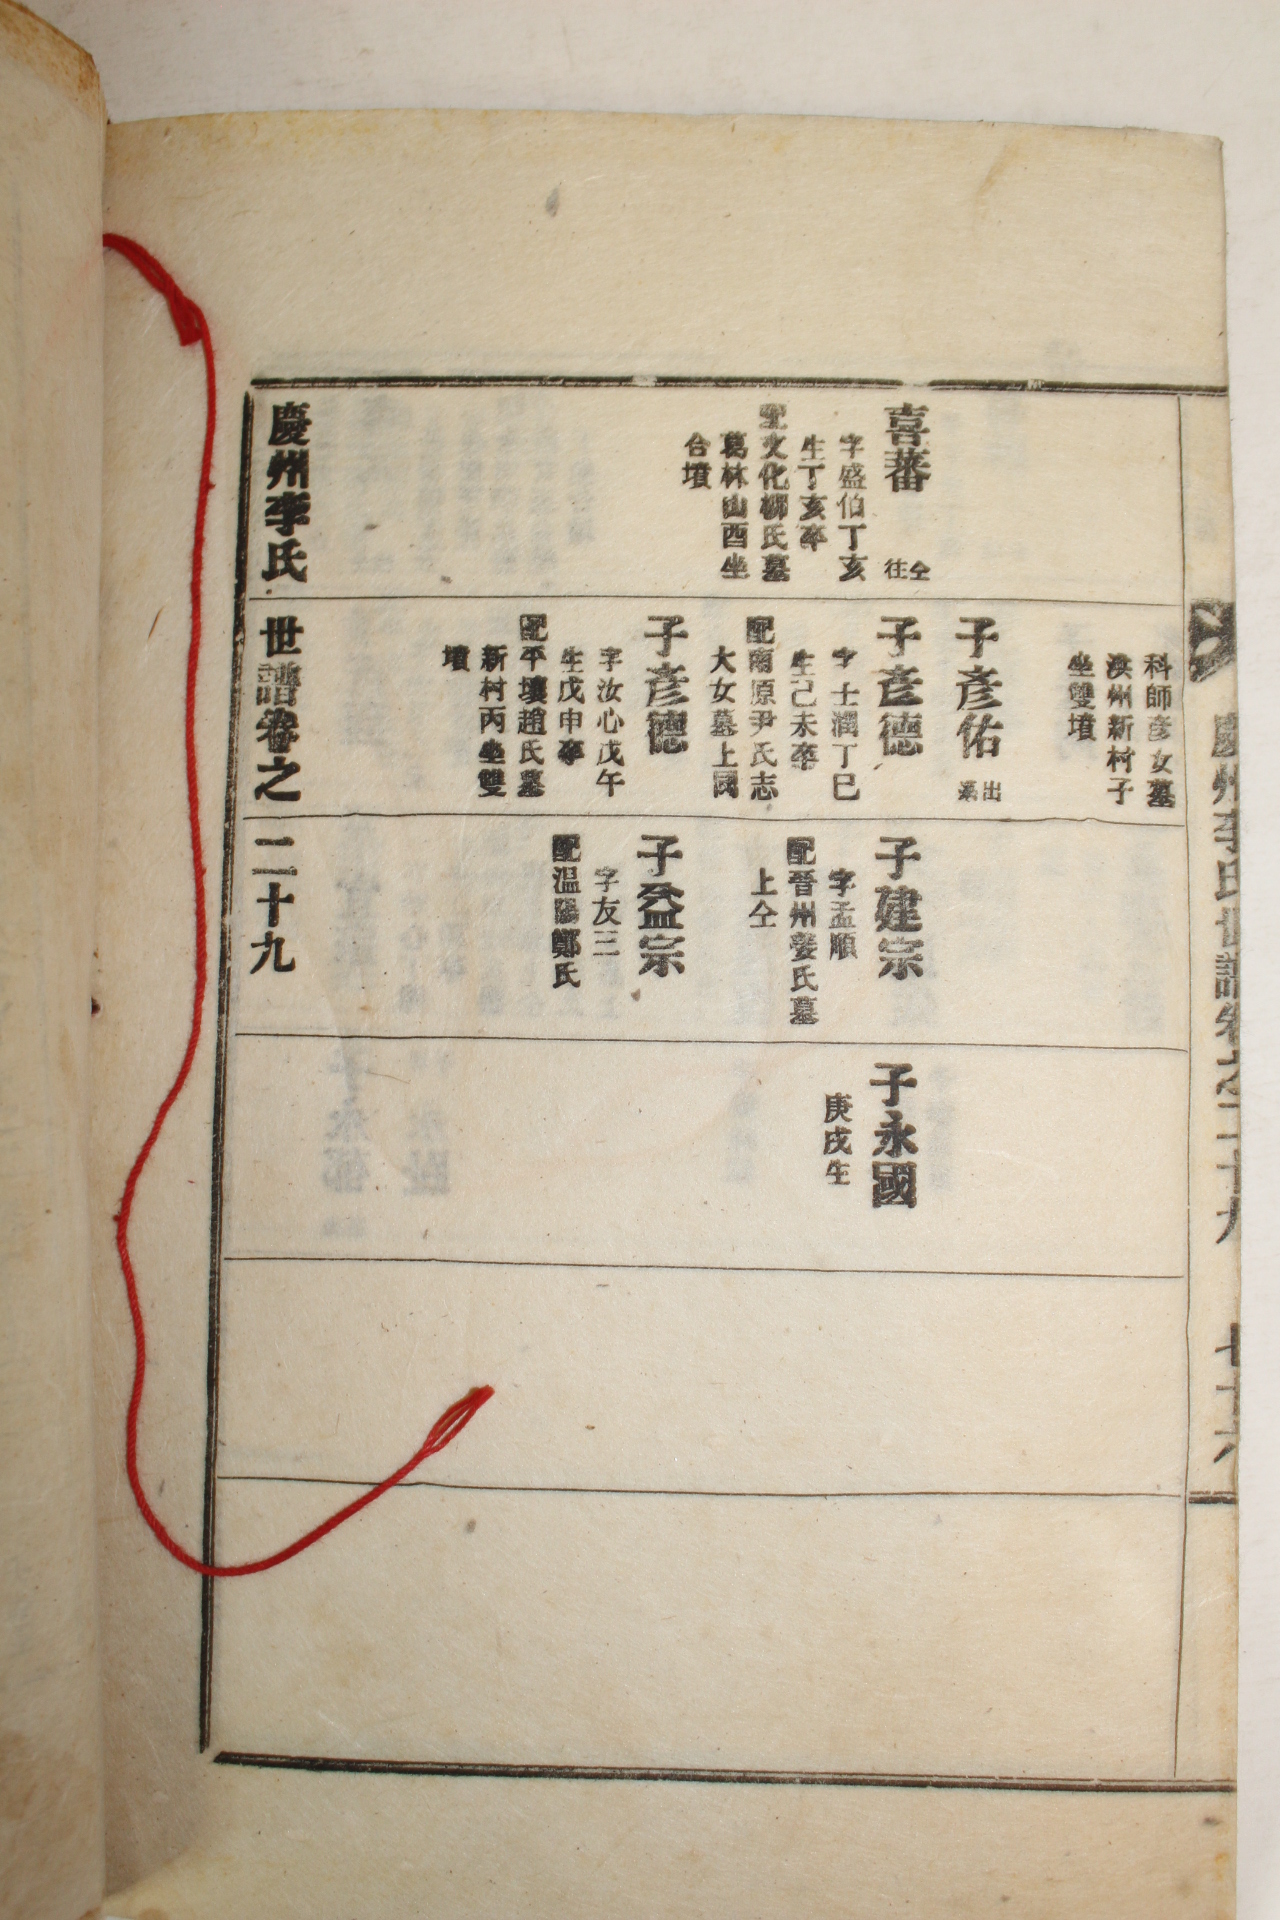 慶州李氏世譜卷之二十九
喜蕃 仝往
字盛伯丁亥
生丁亥卒
配文化柳氏墓
葛林山酉坐
合墳
科師彦女墓
溟州新村子
坐雙墳
子彦佑 出系
子彦德
字士潤丁巳
生己未卒
配南原尹氏志
大女墓上同
子彦德
字汝心戊午
生戊申卒
配平壤趙氏墓
新村丙坐雙
墳
子建宗
字孟順
配晉州姜氏墓
上仝
子益宗
字友三
配溫陽鄭氏
子永國
庚戌生
慶州李氏世譜卷之二十九